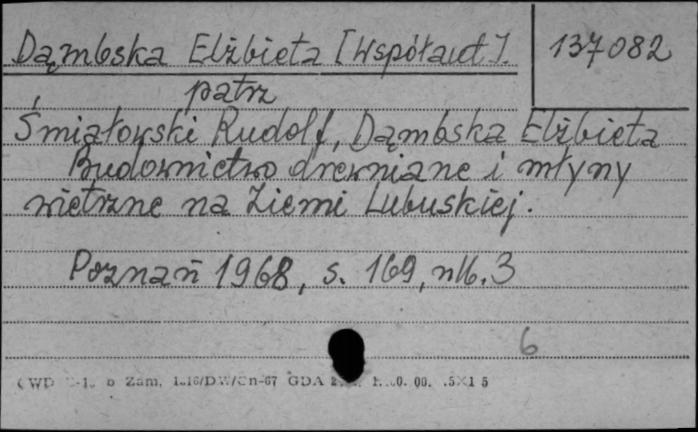 Dąmbska Elżbieta [Współaut].
137082
patrz
Śmiałowski Rudolf, Dąmbska Elżbieta
Budownictwo drewniane i młyny
wietrzne na Ziemi Lubuskiej.
Poznań 1968, s. 169, nlb. 3
6
Zam. GDA